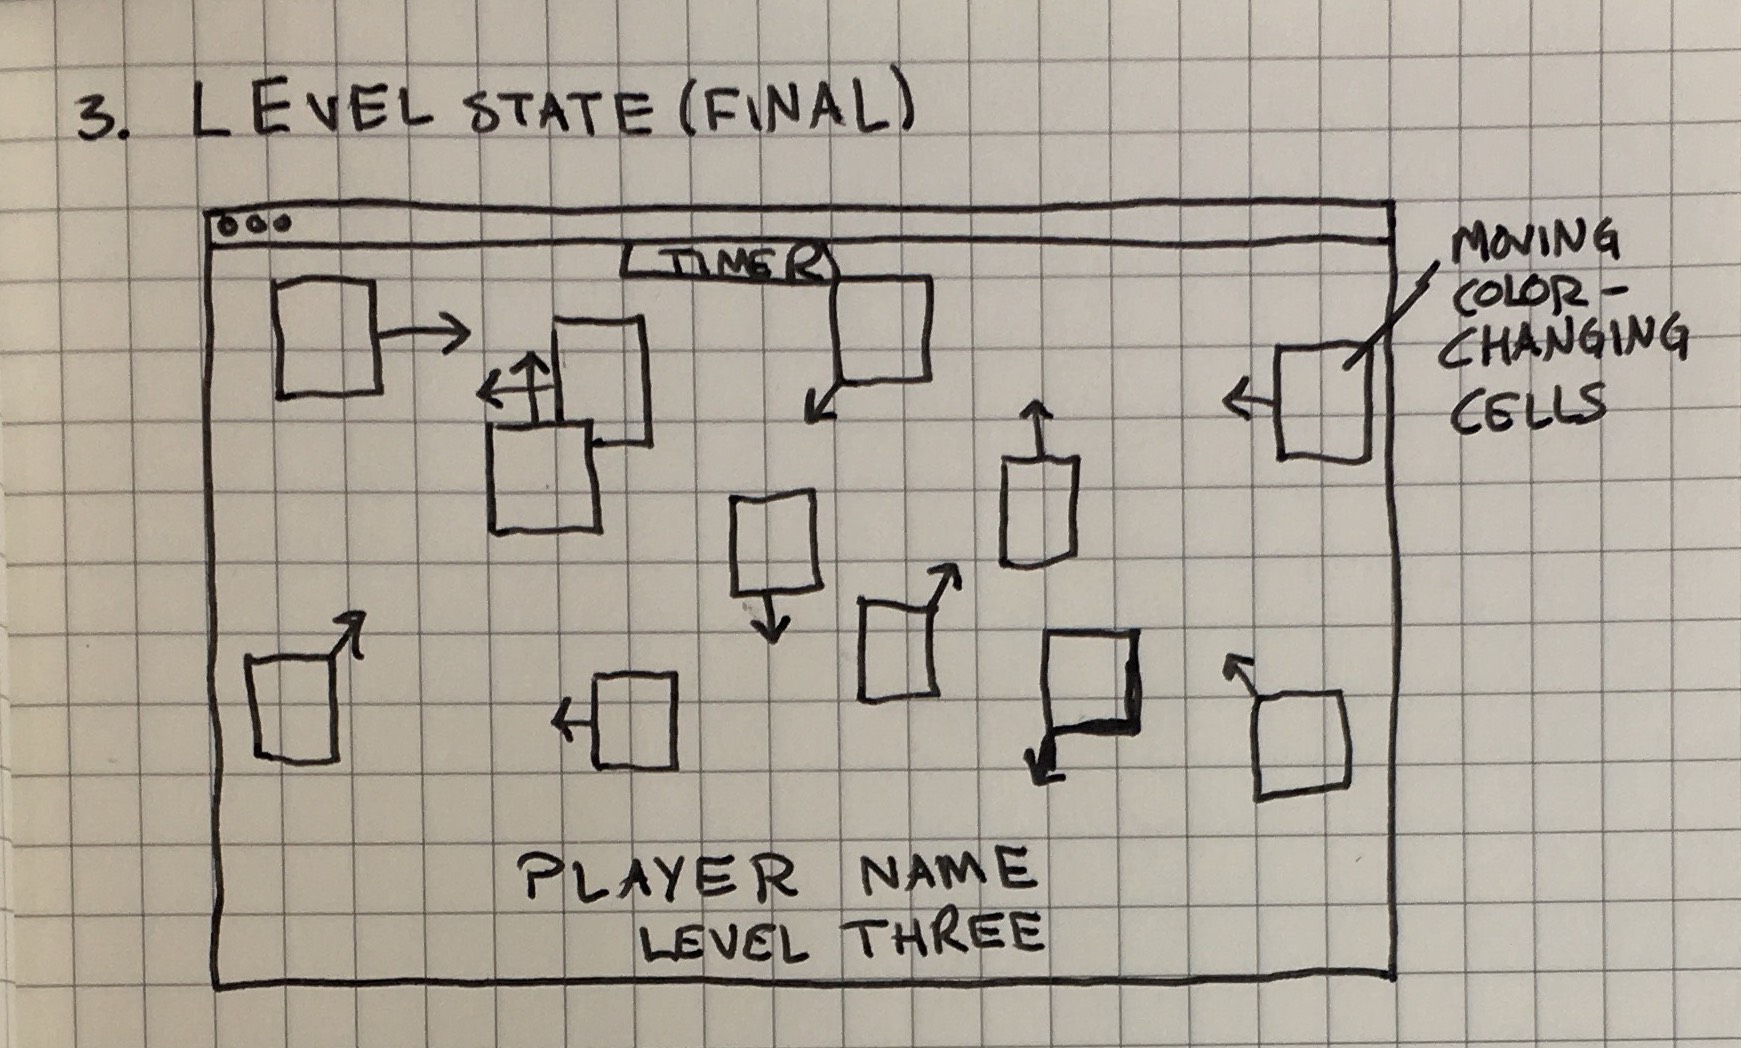 3. LEVEL STATE (FINAL)
TIMER
MOVING
COLOR-
CHANGING
CELLS
PLAYER NAME
LEVEL THREE